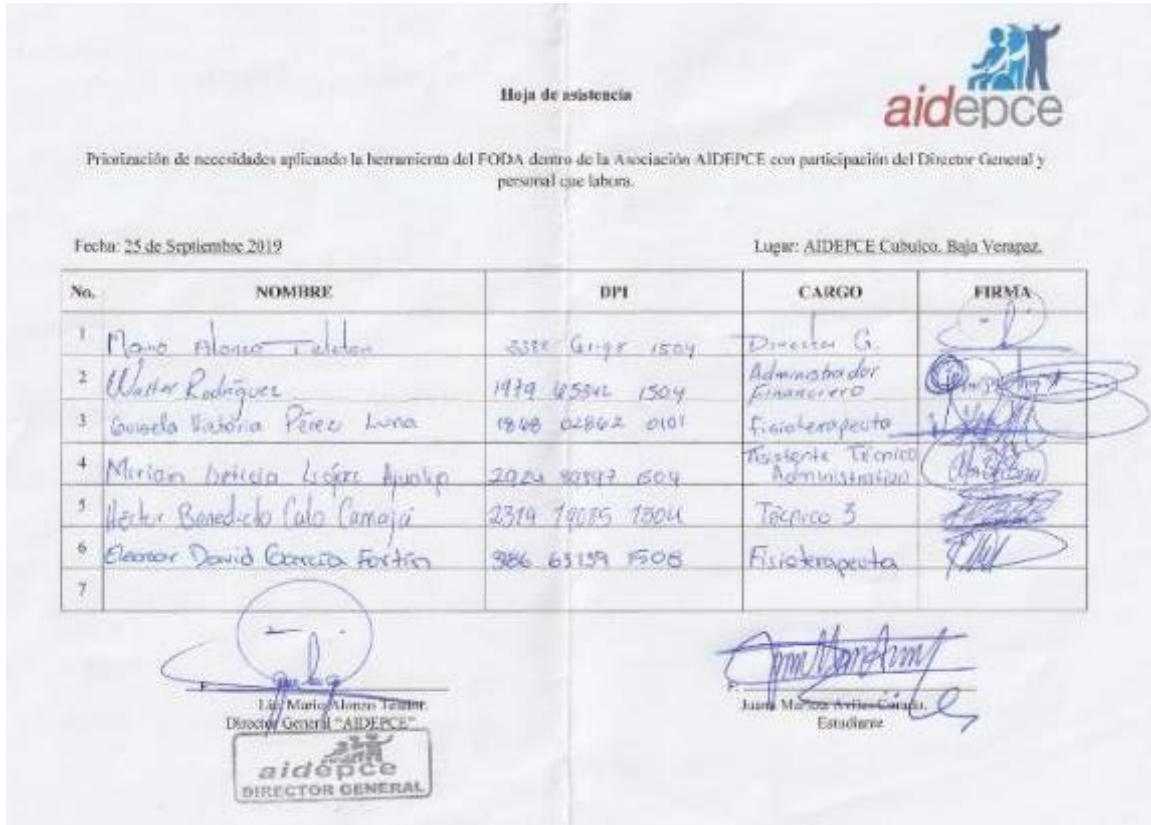 aidepce
Hoja de asistencia
Priorización de necesidades aplicando la herramienta del FODA dentro de la Asociación AIDEPCE con participación del Director General y
personal que labora.
Fecha: 25 de Septiembre 2019 Lugar: AIDEPCE Cubulco, Baja Verapaz.
No. NOMBRE DPI CARGO FIRMA
1 Mario Alonzo 1504 Director G.
2 Walter Rodríguez 1979 1504 Administrador Financiero
3 Victoria Pérez Luna 1848 02862 0101 Fisioterapeuta
4 Miriam Leticia López 1504 Asistente Técnico Administrativo
5 Héctor Benedicto 2319 1504 Técnico 3
6 Eleonor David García Fortín 1508 Fisioterapeuta
7
Lic. Mario Alonzo
Director General "AIDEPCE"
Juana
Estudiante
aidepce
DIRECTOR GENERAL